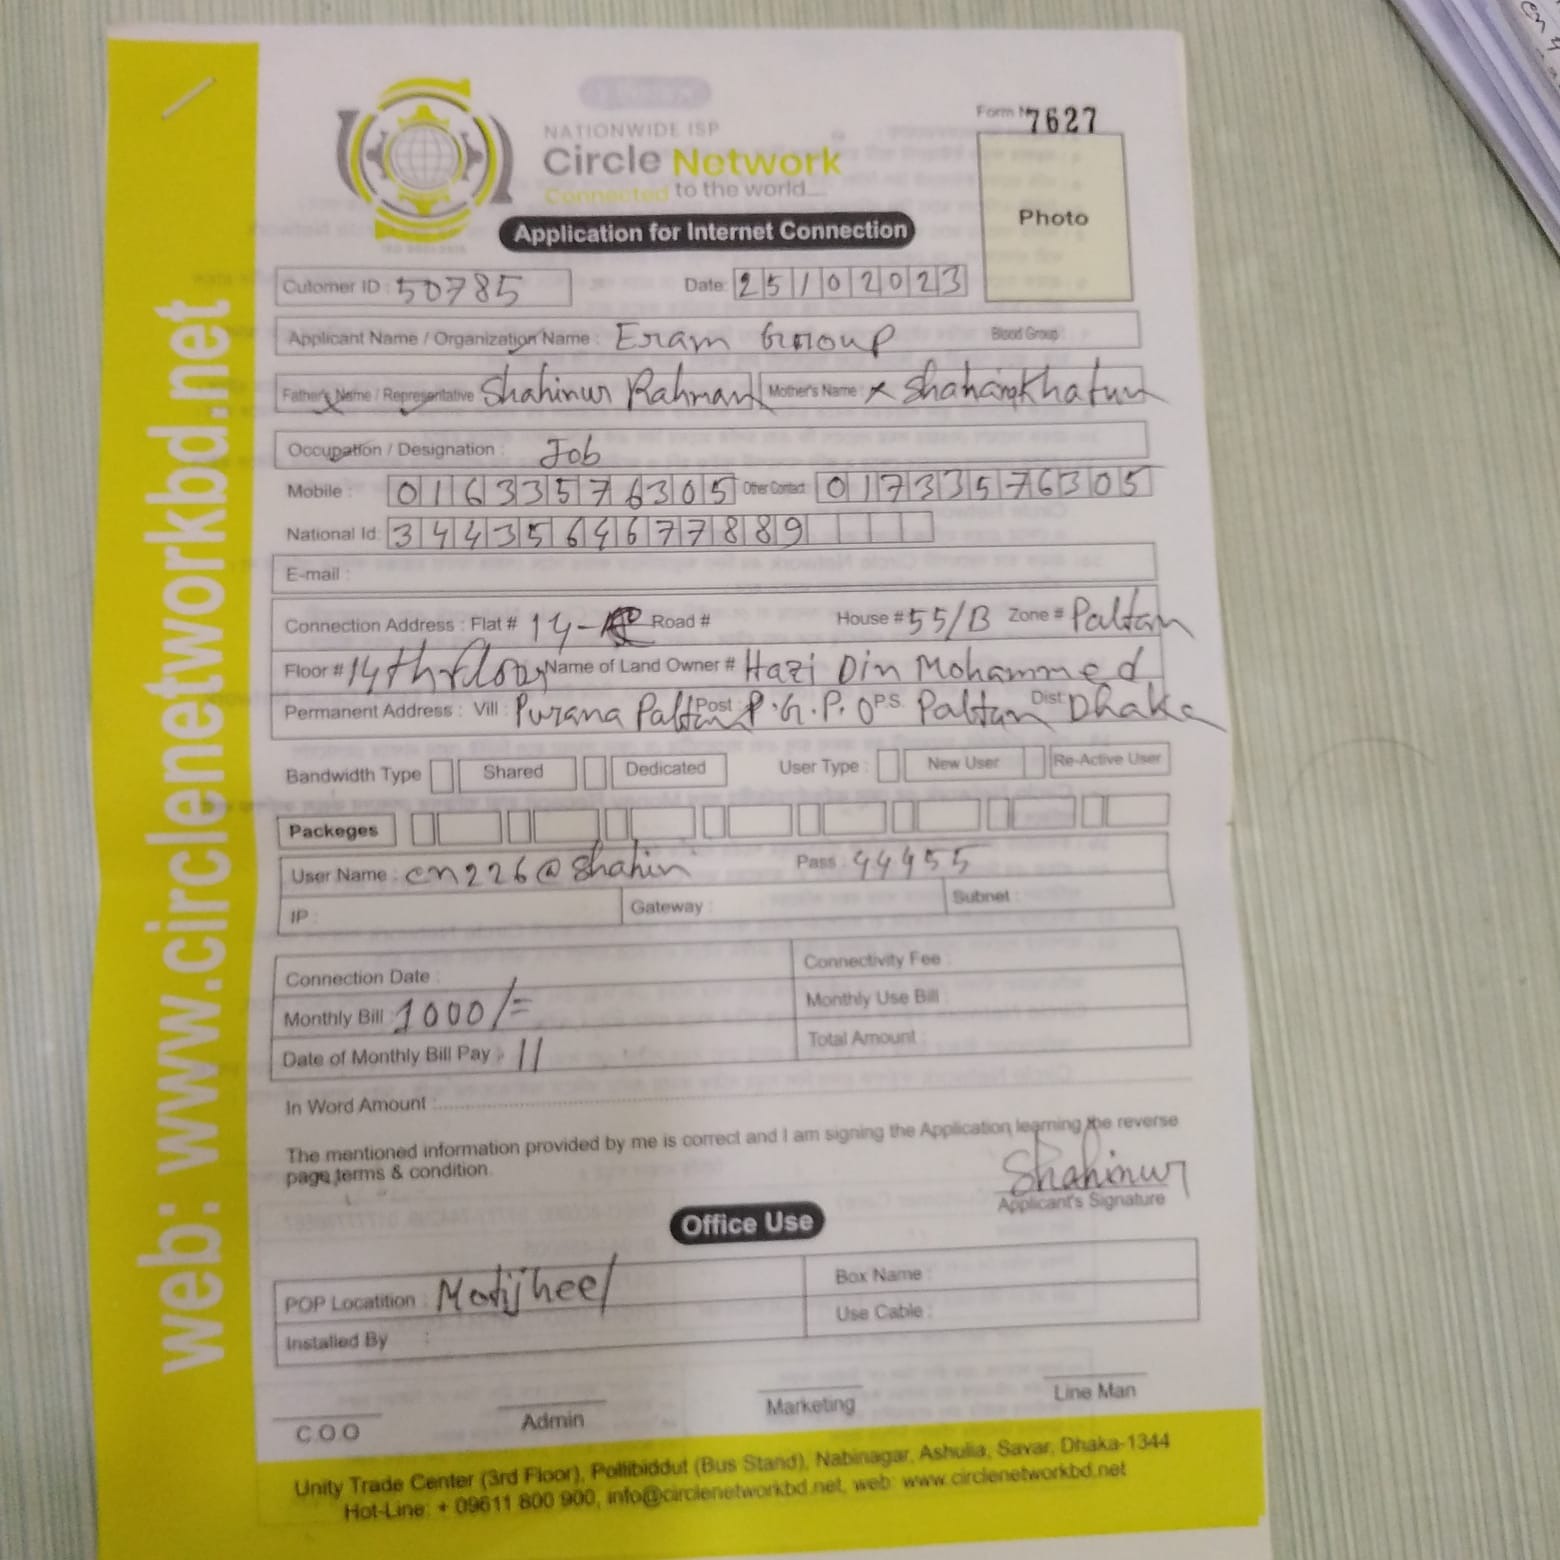 web: www.circlenetworkbd.net
NATIONWIDE ISP
Circle Network
Connected to the world
Application for Internet Connection
Form 7627
Photo
Cutomer ID : 50785 Date: 25/02023
Applicant Name / Organization Name : Eram Group Blood Group :
Father's Name / Representative Shahinur Rahman Mother's Name : x Shahang Khatun
Occupation / Designation : Job
Mobile : 01633576305 Other Contact: 01733576305
National Id: 3443564677889
E-mail :
Connection Address : Flat # 14- Road # House # 55/B Zone # Paltan
Floor # 14th floor Name of Land Owner # Hazi Din Mohammed
Permanent Address : Vill : Purana Paltan Post : P.G.P.O P.S. Paltan Dist Dhaka
Bandwidth Type Shared Dedicated User Type : New User Re-Active User
Packeges
User Name : cn226@shahin Pass : 44455
IP : Gateway : Subnet :
Connection Date : Connectivity Fee :
Monthly Bill : 1000/= Monthly Use Bill :
Date of Monthly Bill Pay : 11 Total Amount :
In Word Amount :
The mentioned information provided by me is correct and I am signing the Application learning the reverse
page terms & condition.
Shahinur
Applicant's Signature
Office Use
POP Locatition : Motijheel Box Name :
Installed By : Use Cable :
C.O.O Admin Marketing Line Man
Unity Trade Center (3rd Floor), Pollibiddut (Bus Stand), Nabinagar, Ashulia, Savar, Dhaka-1344
Hot-Line: + 09611 800 900, info@circlenetworkbd.net, web: www.circlenetworkbd.net